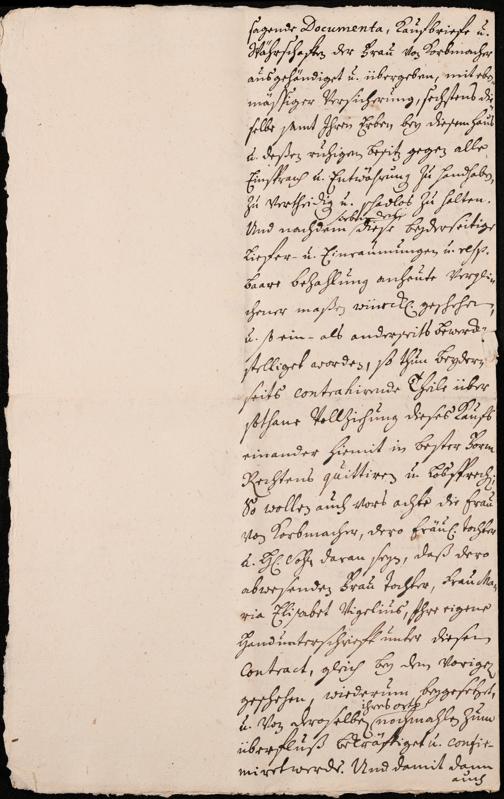 sagende Documenta, Kaufbriefe u.
Währschafften der Frau von Korbmacher
ausgehändiget u. übergeben, mit eben
mässiger Versicherung, sechstens die
selbe samt Ihren Erben bey diesem Hauß
u. deßen ruhigen besitz gegen alle
Einsprach u. Entwährung zu handhaben,
zu vertheidig. u. schadlos zu halten.
Und nachdem siebendens diese beyderseitige
Liefer- u. Einraumungen u. resp.
baare bezahlung anheute vergli-
chener maßen würckl. geschehen,
u. so ein- als anderseits bewerck-
stelliget worden, so thun beyder-
seits contrahirende Theile über
sothane Vollziehung dieses Kauffs
einander hiemit in bester Form
Rechtens quittiren u. lossprech.
So wollen auch vors achte die Frau
von Korbmacher, dero Fräul. tochter
u. H. Sohn daran seyn, daß dero
abwesenden Frau tochter, Frau Ma-
ria Elisabet Vigelius, Ihre eigene
Handunterschrifft unter diesen
Contract, gleich bey dem Vorigen
geschehen, wiederum beygesetzet,
u. von deroselben ihres orts nochmahlen zum
überfluß bekräfftiget u. confir-
miret werde. Und damit dann
auch